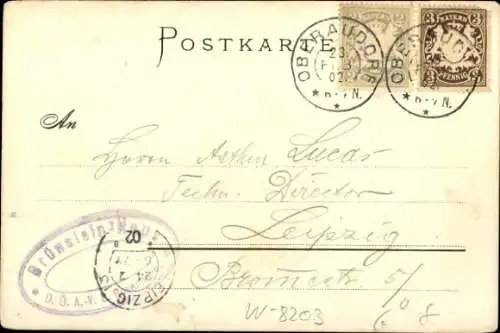 POSTKARTE
OBERAUDORF
23
FEB
02
2
BAYERN
3 3
PFENNIG
An
Herrn Arthur Lucas
Techn. Director
Leipzig
Bromestr 5/
Brünsteinhaus
D.Ö.A.-V.
LEIPZIG
24 2
02
W-8203